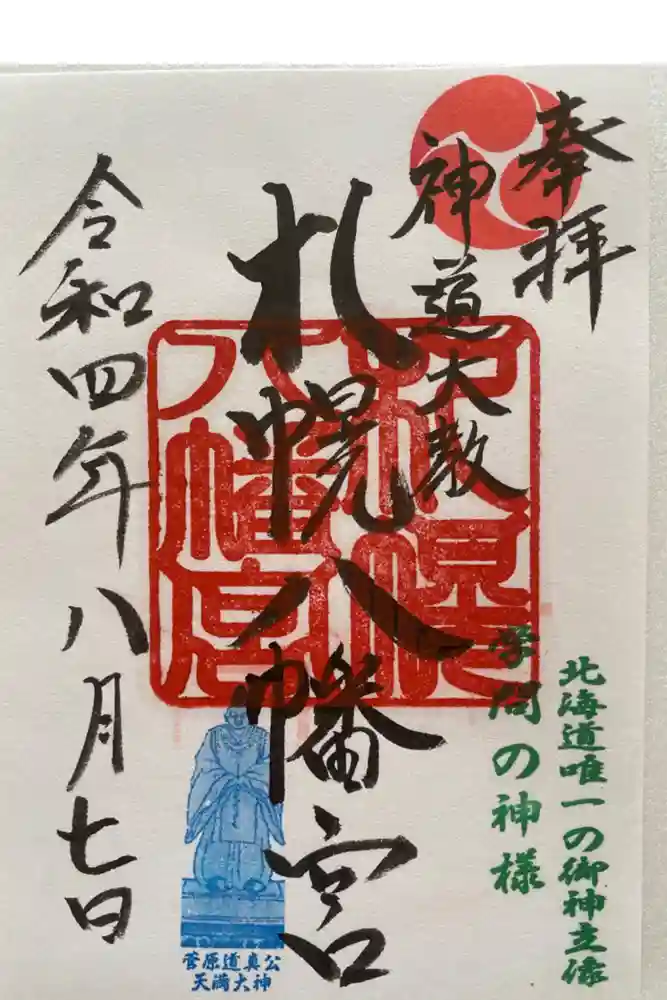 奉拝
神道大教
札幌八幡宮
令和四年八月七日
札幌
八幡宮
北海道唯一の御神立像
学問の神様
菅原道真公
天満大神